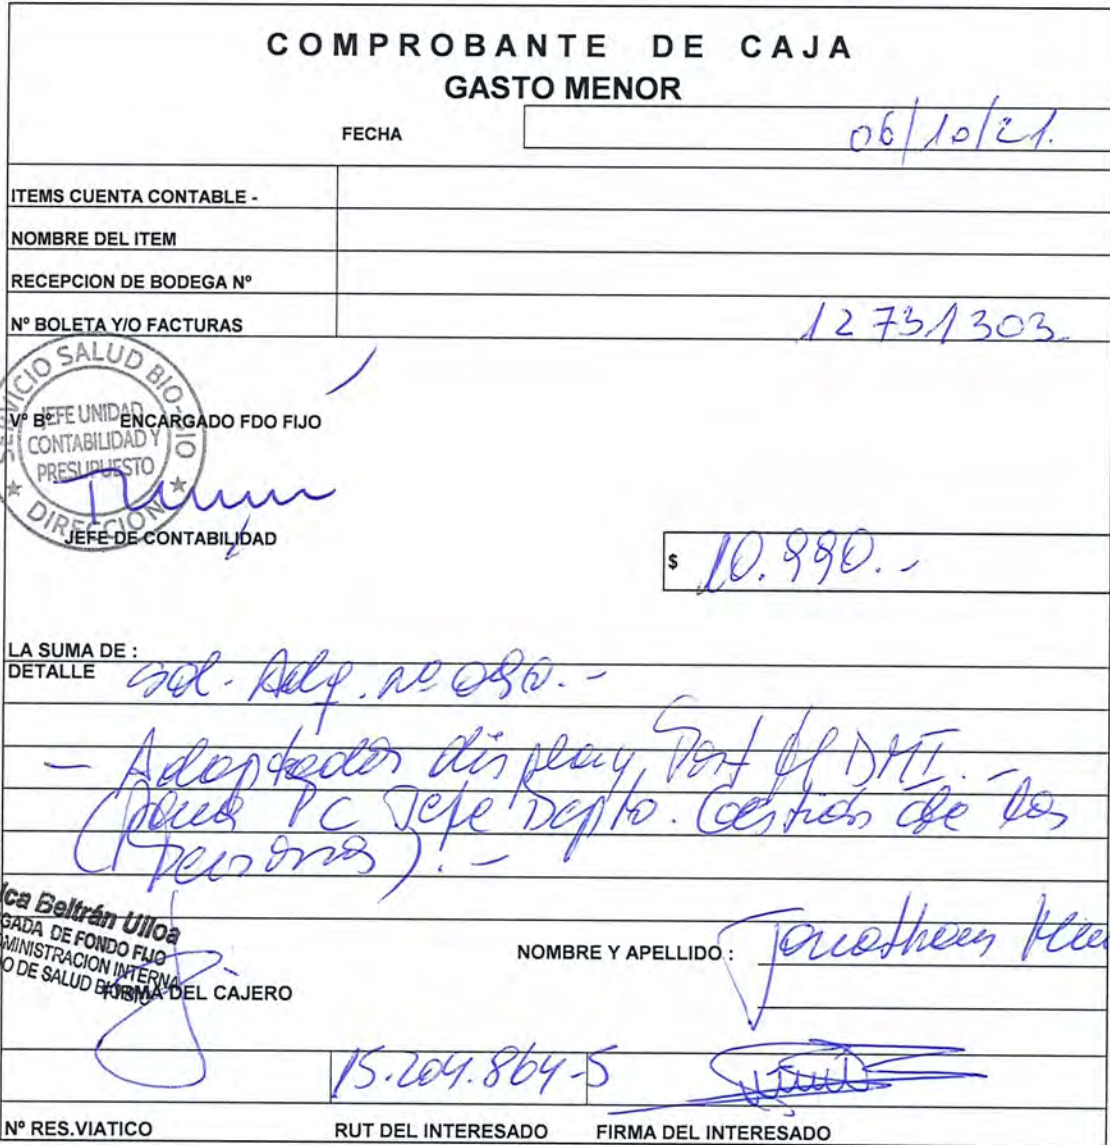 COMPROBANTE DE CAJA
GASTO MENOR
FECHA 06/10/21.
ITEMS CUENTA CONTABLE -
NOMBRE DEL ITEM
RECEPCION DE BODEGA Nº
Nº BOLETA Y/O FACTURAS 12731303
SERVICIO SALUD BIO-BIO
JEFE UNIDAD
CONTABILIDAD Y
PRESUPUESTO
DIRECCION
Vº Bº ENCARGADO FDO FIJO
JEFE DE CONTABILIDAD
$ 10.990.-
LA SUMA DE :
DETALLE Sol. Adq. nº 080.-
- Adaptador display Port HDMI.-
(para PC Jefe Depto. Gestión de las
Personas).-
ica Beltrán Ulloa
GADA DE FONDO FIJO
MINISTRACION INTERNA
O DE SALUD BIOBIO
FIRMA DEL CAJERO
NOMBRE Y APELLIDO : Jonathan
15.204.864-5
Nº RES.VIATICO RUT DEL INTERESADO FIRMA DEL INTERESADO